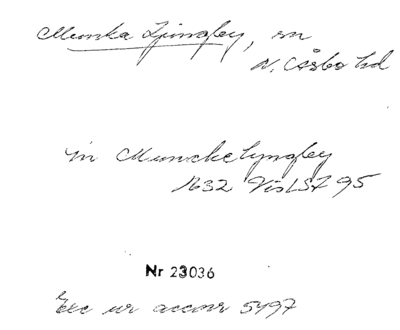 Munka Ljungby, sn
N. Åsbo hd
in Munckelyngbÿ
1632 VisLSt 95
Nr 23036
Exc ur acc nr 5497